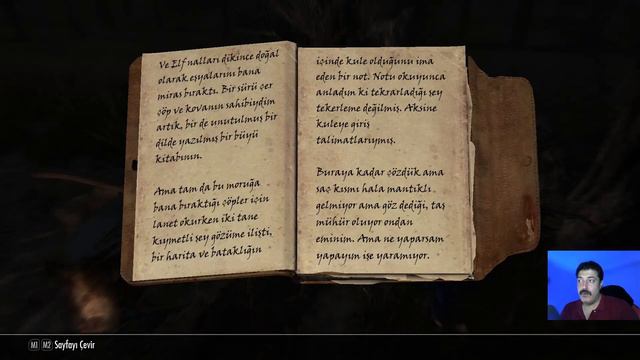 Ve Elf nalları dikince doğal
olarak eşyalarını bana
miras bıraktı. Bir sürü çer
çöp ve kovanın sahibiydim
artık, bir de unutulmuş bir
dilde yazılmış bir büyü
kitabının.
Ama tam da bu moruğa
bana bıraktığı çöpler için
lanet okurken iki tane
kıymetli şey gözüme ilişti,
bir harita ve bataklığın
içinde kule olduğunu ima
eden bir not. Notu okuyunca
anladım ki tekrarladığı şey
tekerleme değilmiş. Aksine
kuleye giriş
talimatlarıymış.
Buraya kadar çözdük ama
saç kısmı hala mantıklı
gelmiyor ama göz dediği, taş
mühür oluyor ondan
eminim. Ama ne yaparsam
yapayım işe yaramıyor.
M1 M2 Sayfayı Çevir